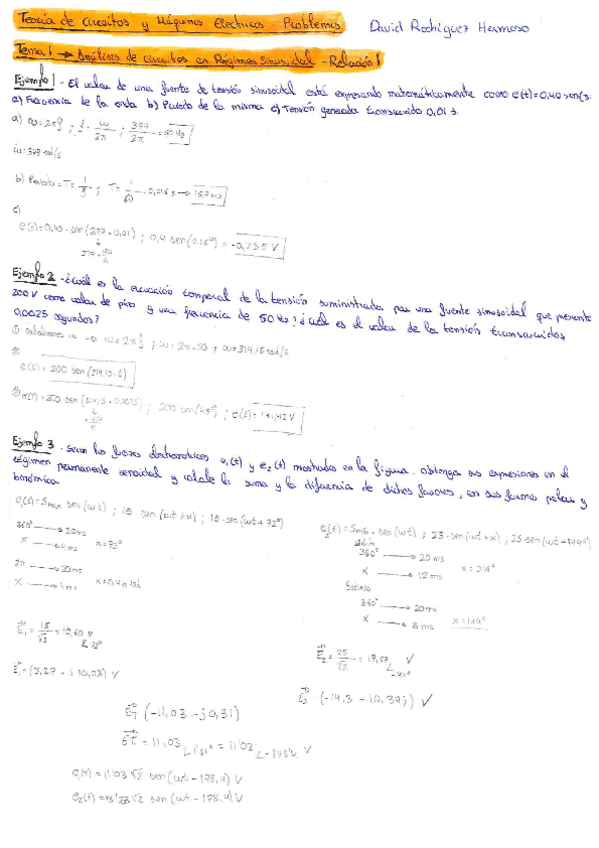 Teoría de Circuitos y Máquinas Electricas - Problemas David Rodríguez Hermoso
Tema 1 → Análisis de circuitos en Régimen Sinusoidal - Relación 1
Ejemplo 1.- El valor de una fuente de tensión sinusoidal está expresado matemáticamente como e(t)=0,40·sen(3
a) Frecuencia de la onda b) Periodo de la misma c) Tensión generada transcurrido 0,01 s.
a) ω=2πf ; f= ω/2π ; 377/2π = 60 Hz
ω=377 rad/s
b) Periodo=T= 1/f ; T= 1/60 = 0,016 s → 16,7 ms
c)
e(t)=0,40·sen(377·0,01) ; 0,4 sen(216º) = -0,235 V
377·180/π
Ejemplo 2.- ¿Cuál es la ecuación temporal de la tensión suministrada por una fuente sinusoidal que presenta
200 V como valor de pico y una frecuencia de 50 Hz? ¿cuál es el valor de la tensión transcurridos
0,0025 segundos?
① calculamos ω → ω=2πf ; ω=2π·50 ; ω=314,15 rad/s
②
e(t)= 200 sen(314,15·t)
③ e(t)=200 sen(314,15·0,0025) ; 200 sen(45º) ; e(t)=141,42 V
Ejemplo 3.- Sean las fuerzas electromotrices e₁(t) y e₂(t) mostradas en la figura. obtenga sus expresiones en el
régimen permanente senoidal y calcule la suma y la diferencia de dichos fasores, en sus formas polar y
binómica.
e₁(t)= Smax sen(ωt) ; 15 sen(ωt+α) ; 15·sen(ωt+72º)
360º → 20ms
x → 4ms x=72º
2π → 20ms
x → 4ms x=0,4π rad
e₂(t)= Smax·sen(ωt) ; 25·sen(ωt+x) ; 25 sen(ωt-144º)
360º → 20 ms
x → 12 ms x=216º
360º → 20ms
x → 8ms x=144º
E₁= 15/√2 = 10,60 V ∠72º
E₁=(3,27 + j 10,03) V
E₂= 25/√2 = 17,67 ∠-144º V
E₂ (-14,3 - 10,39j) V
ET (-11,03 - j0,31)
Et = 11,03 ∠181º = 11'03 ∠-178'4 V
e(t)=11'03 √2 sen(ωt - 178,4) V